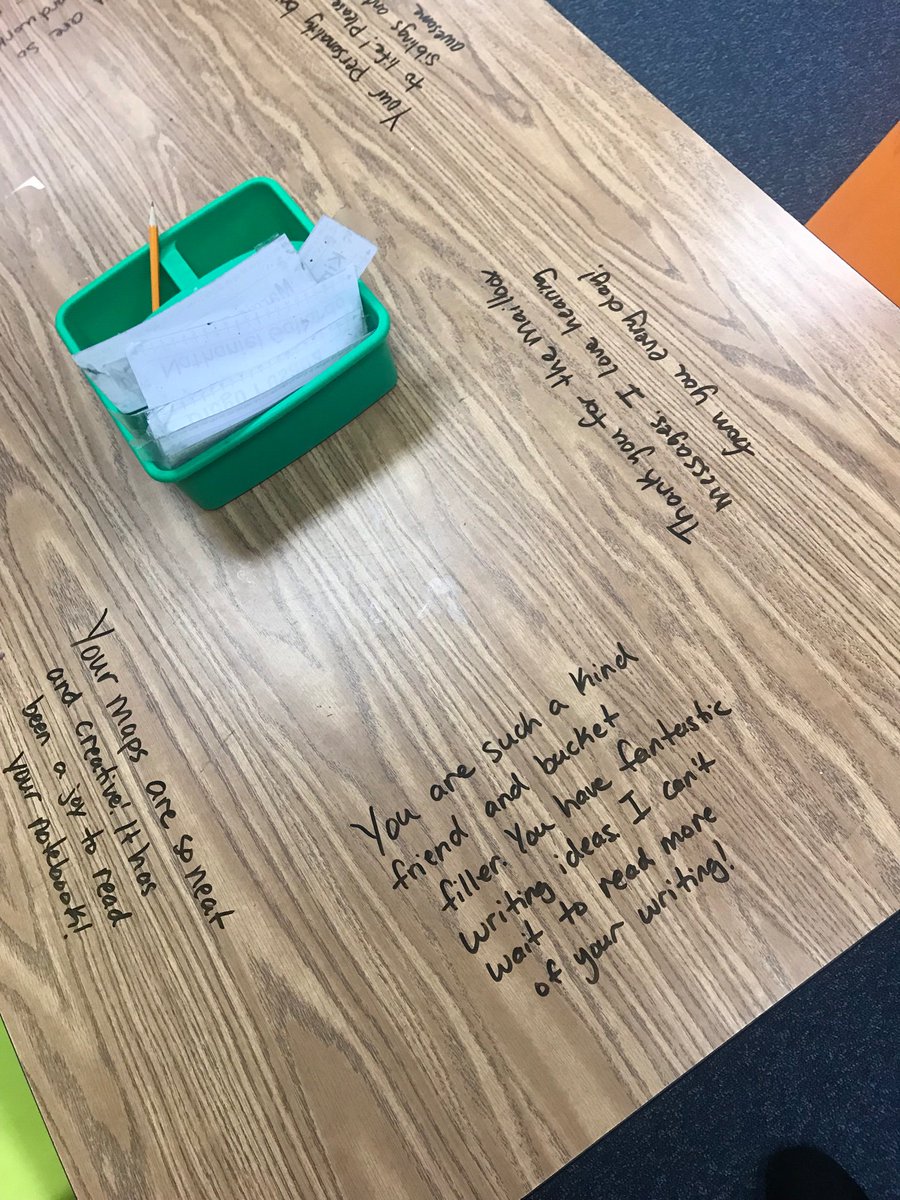 are so
hard work
Your personality
to life! Please
siblings and
awesome
Thank you for the Mailbox
messages. I love hearing
from you every day!
Your maps are so neat
and creative! It has
been a joy to read
your notebook!
You are such a kind
friend and bucket
filler. You have fantastic
writing ideas. I can't
wait to read more
of your writing!
Nathaniel